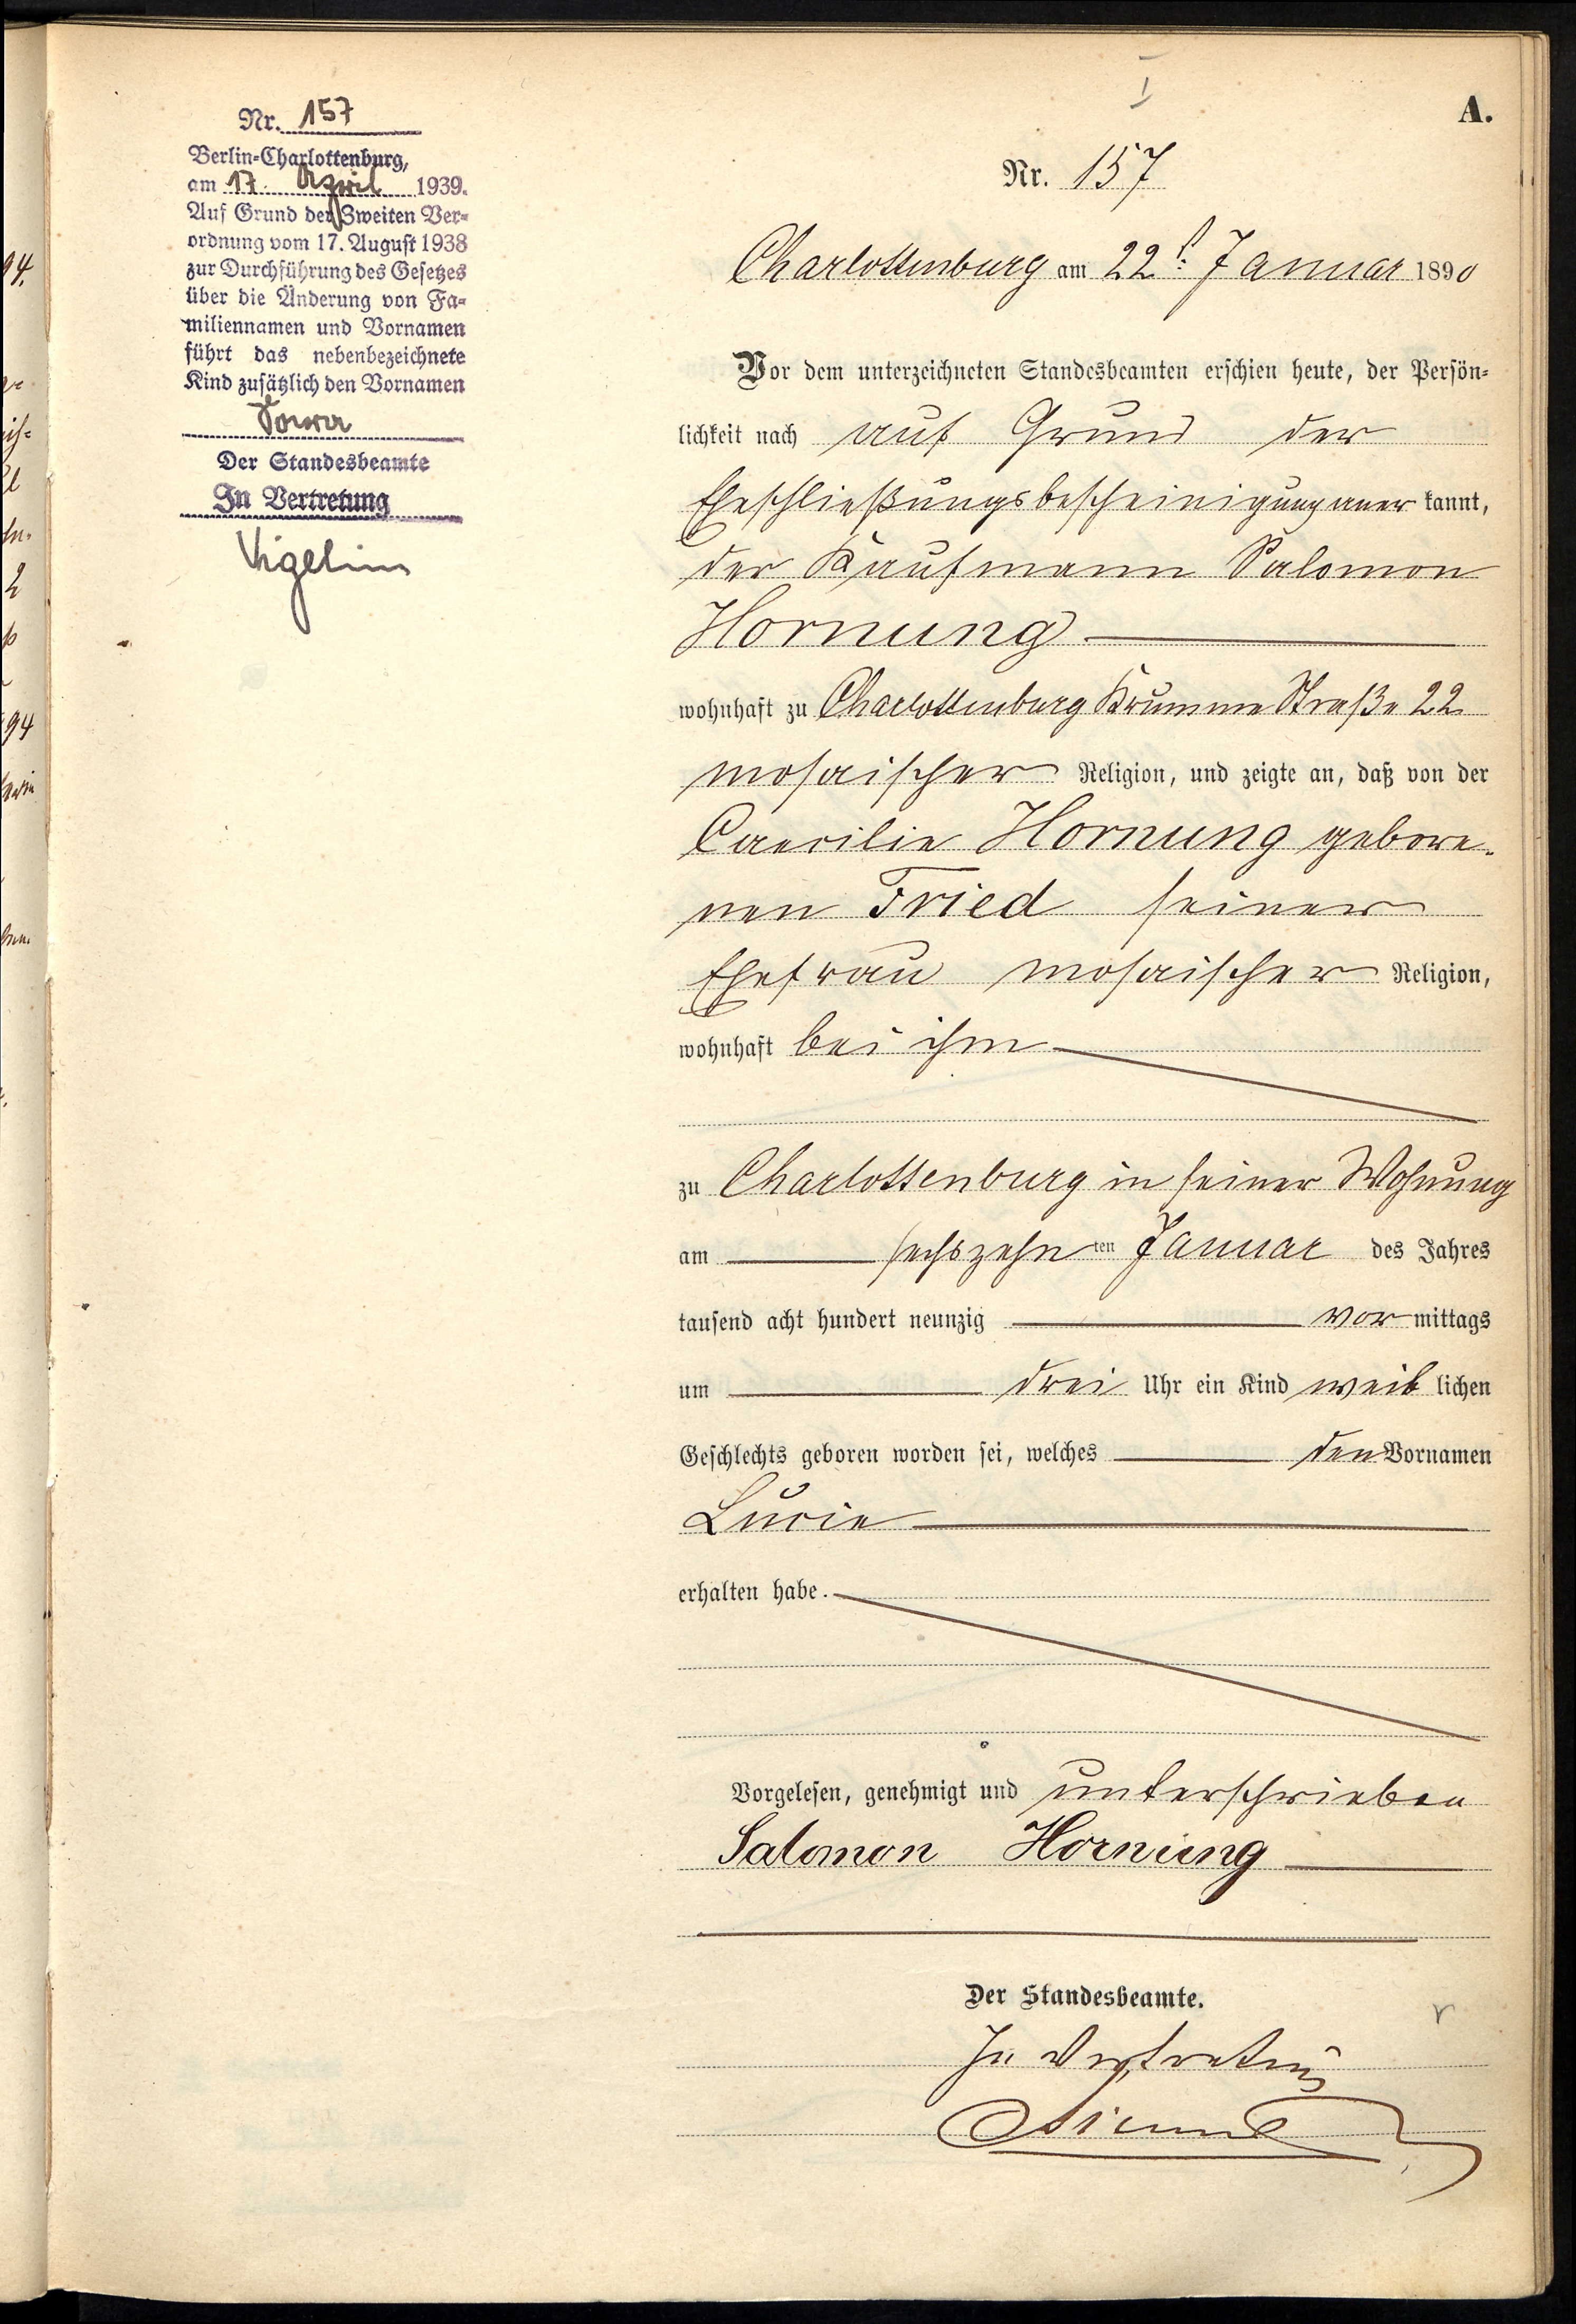 Nr. 157
Berlin-Charlottenburg,
am 17. April 1939.
Auf Grund der Zweiten Ver-
ordnung vom 17. August 1938
zur Durchführung des Gesetzes
über die Änderung von Fa-
miliennamen und Vornamen
führt das nebenbezeichnete
Kind zusätzlich den Vornamen
Sara
Der Standesbeamte
In Vertretung
A.
Nr. 157
Charlottenburg am 22t. Januar 1890
Vor dem unterzeichneten Standesbeamten erschien heute, der Persön-
lichkeit nach auf Grund der
Eheschließungsbescheinigung aner kannt,
der Kaufmann Salomon
Hornung
wohnhaft zu Charlottenburg Krumme Straße 22
mosaischer Religion, und zeigte an, daß von der
Caecilie Hornung gebore-
nen Fried seiner
Ehefrau mosaischer Religion,
wohnhaft bei ihm
zu Charlottenburg in seiner Wohnung
am sechszehn ten Januar des Jahres
tausend acht hundert neunzig vor mittags
um drei Uhr ein Kind weib lichen
Geschlechts geboren worden sei, welches den Vornamen
Lucie
erhalten habe.
Vorgelesen, genehmigt und unterschrieben
Salomon Hornung
Der Standesbeamte.
In Vertretung